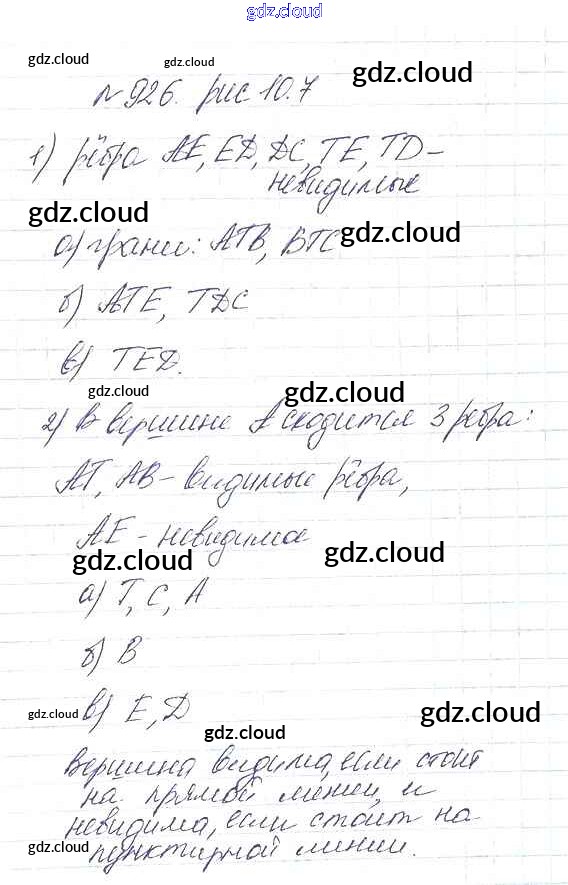 gdz.cloud
gdz.cloud
gdz.cloud
gdz.cloud
№926. рис 10.7
1) рёбра AE, ED, DC, TE, TD –
невидимые
gdz.cloud
а) грани: ATB, BTC
gdz.cloud
б) ATE, TDC
в) TED.
gdz.cloud
gdz.cloud
2) В вершине A сходится 3 ребра:
AT, AB – видимые рёбра,
AE – невидимое
gdz.cloud
gdz.cloud
а) T, C, A
б) B
gdz.cloud
в) E, D
gdz.cloud
gdz.cloud
Вершина видима, если стоит
на прямой линии, и
невидима, если стоит на
gdz.cloud
пунктирной линии.
gdz.cloud